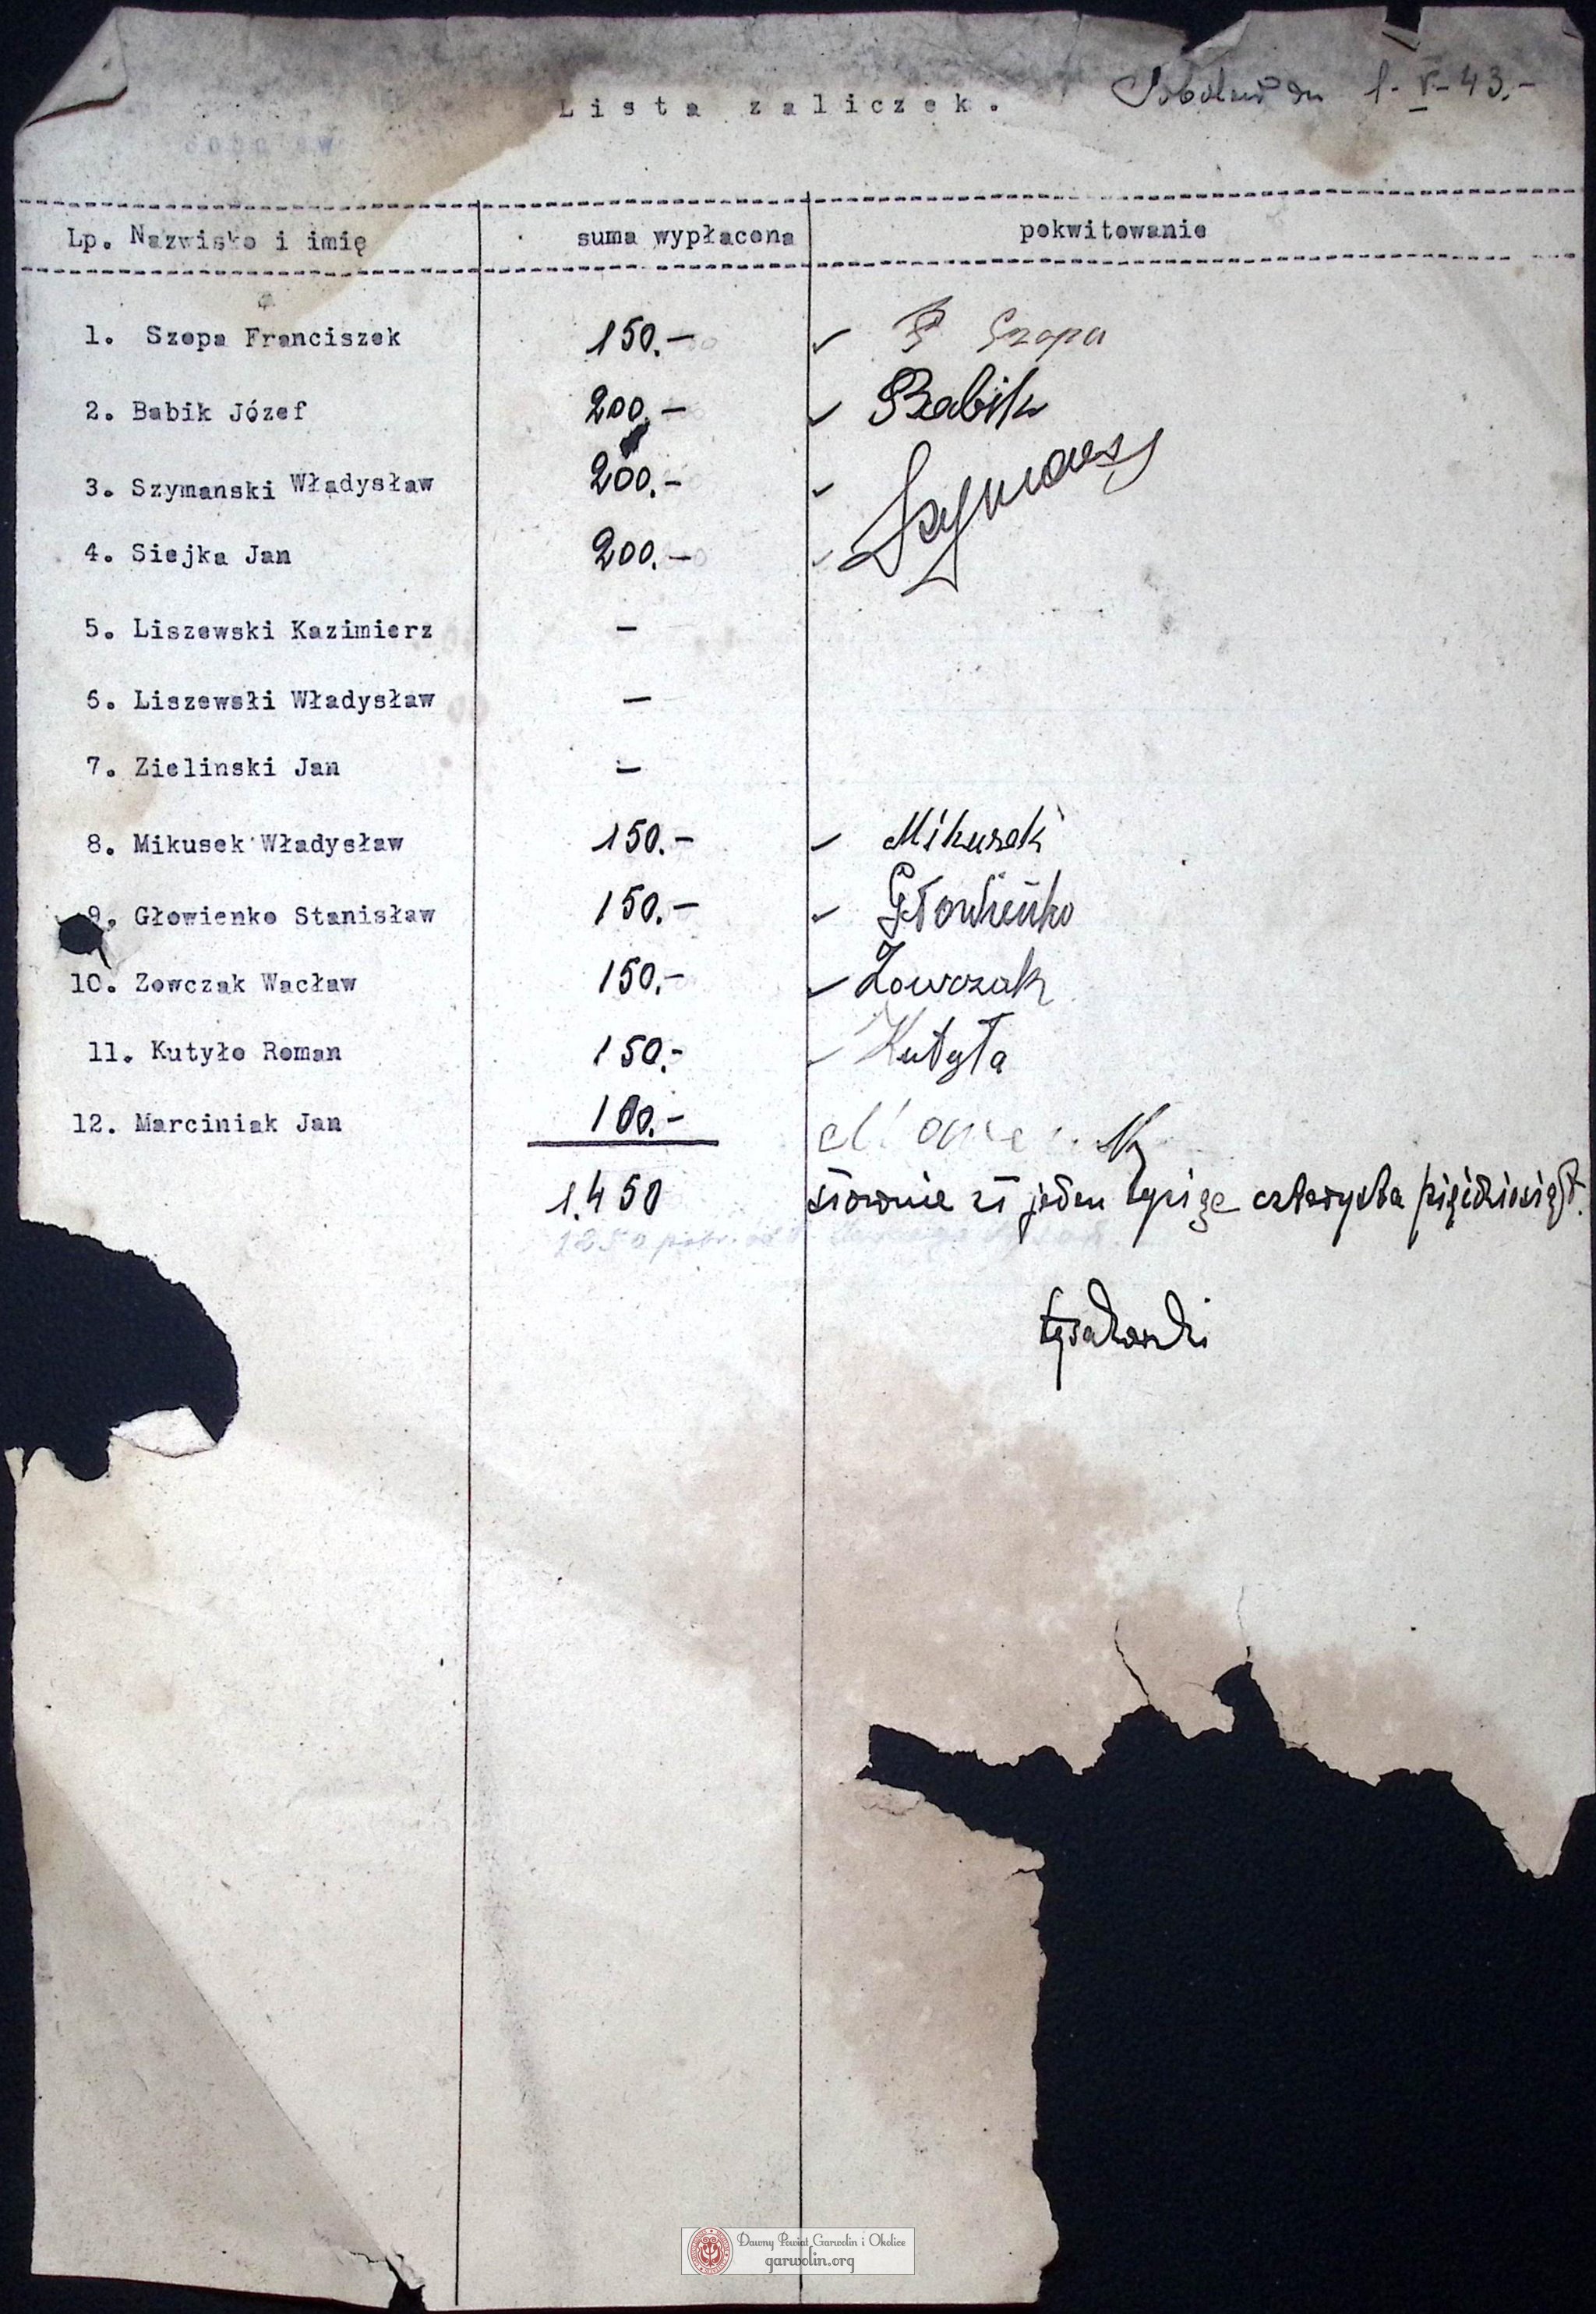 Lista zaliczek.
Sobolew dn 1-V-43.-
Lp. Nazwisko i imię suma wypłacona pokwitowanie
1. Szopa Franciszek 150.- F Szopa
2. Babik Józef 200.- Babik
3. Szymanski Władysław 200.- Szymans
4. Siejka Jan 200.-
5. Liszewski Kazimierz -
6. Liszewski Władysław -
7. Zielinski Jan -
8. Mikusek Władysław 150.- Mikusek
9. Głowienko Stanisław 150.- Głowieńko
10. Zowczak Wacław 150.- Zowczak
11. Kutyło Roman 150.- Kutyła
12. Marciniak Jan 100.-
1.450 słownie zł jeden tysiąc czterysta pięćdziesiąt.
1250
Dawny Powiat Garwolin i Okolice
garwolin.org